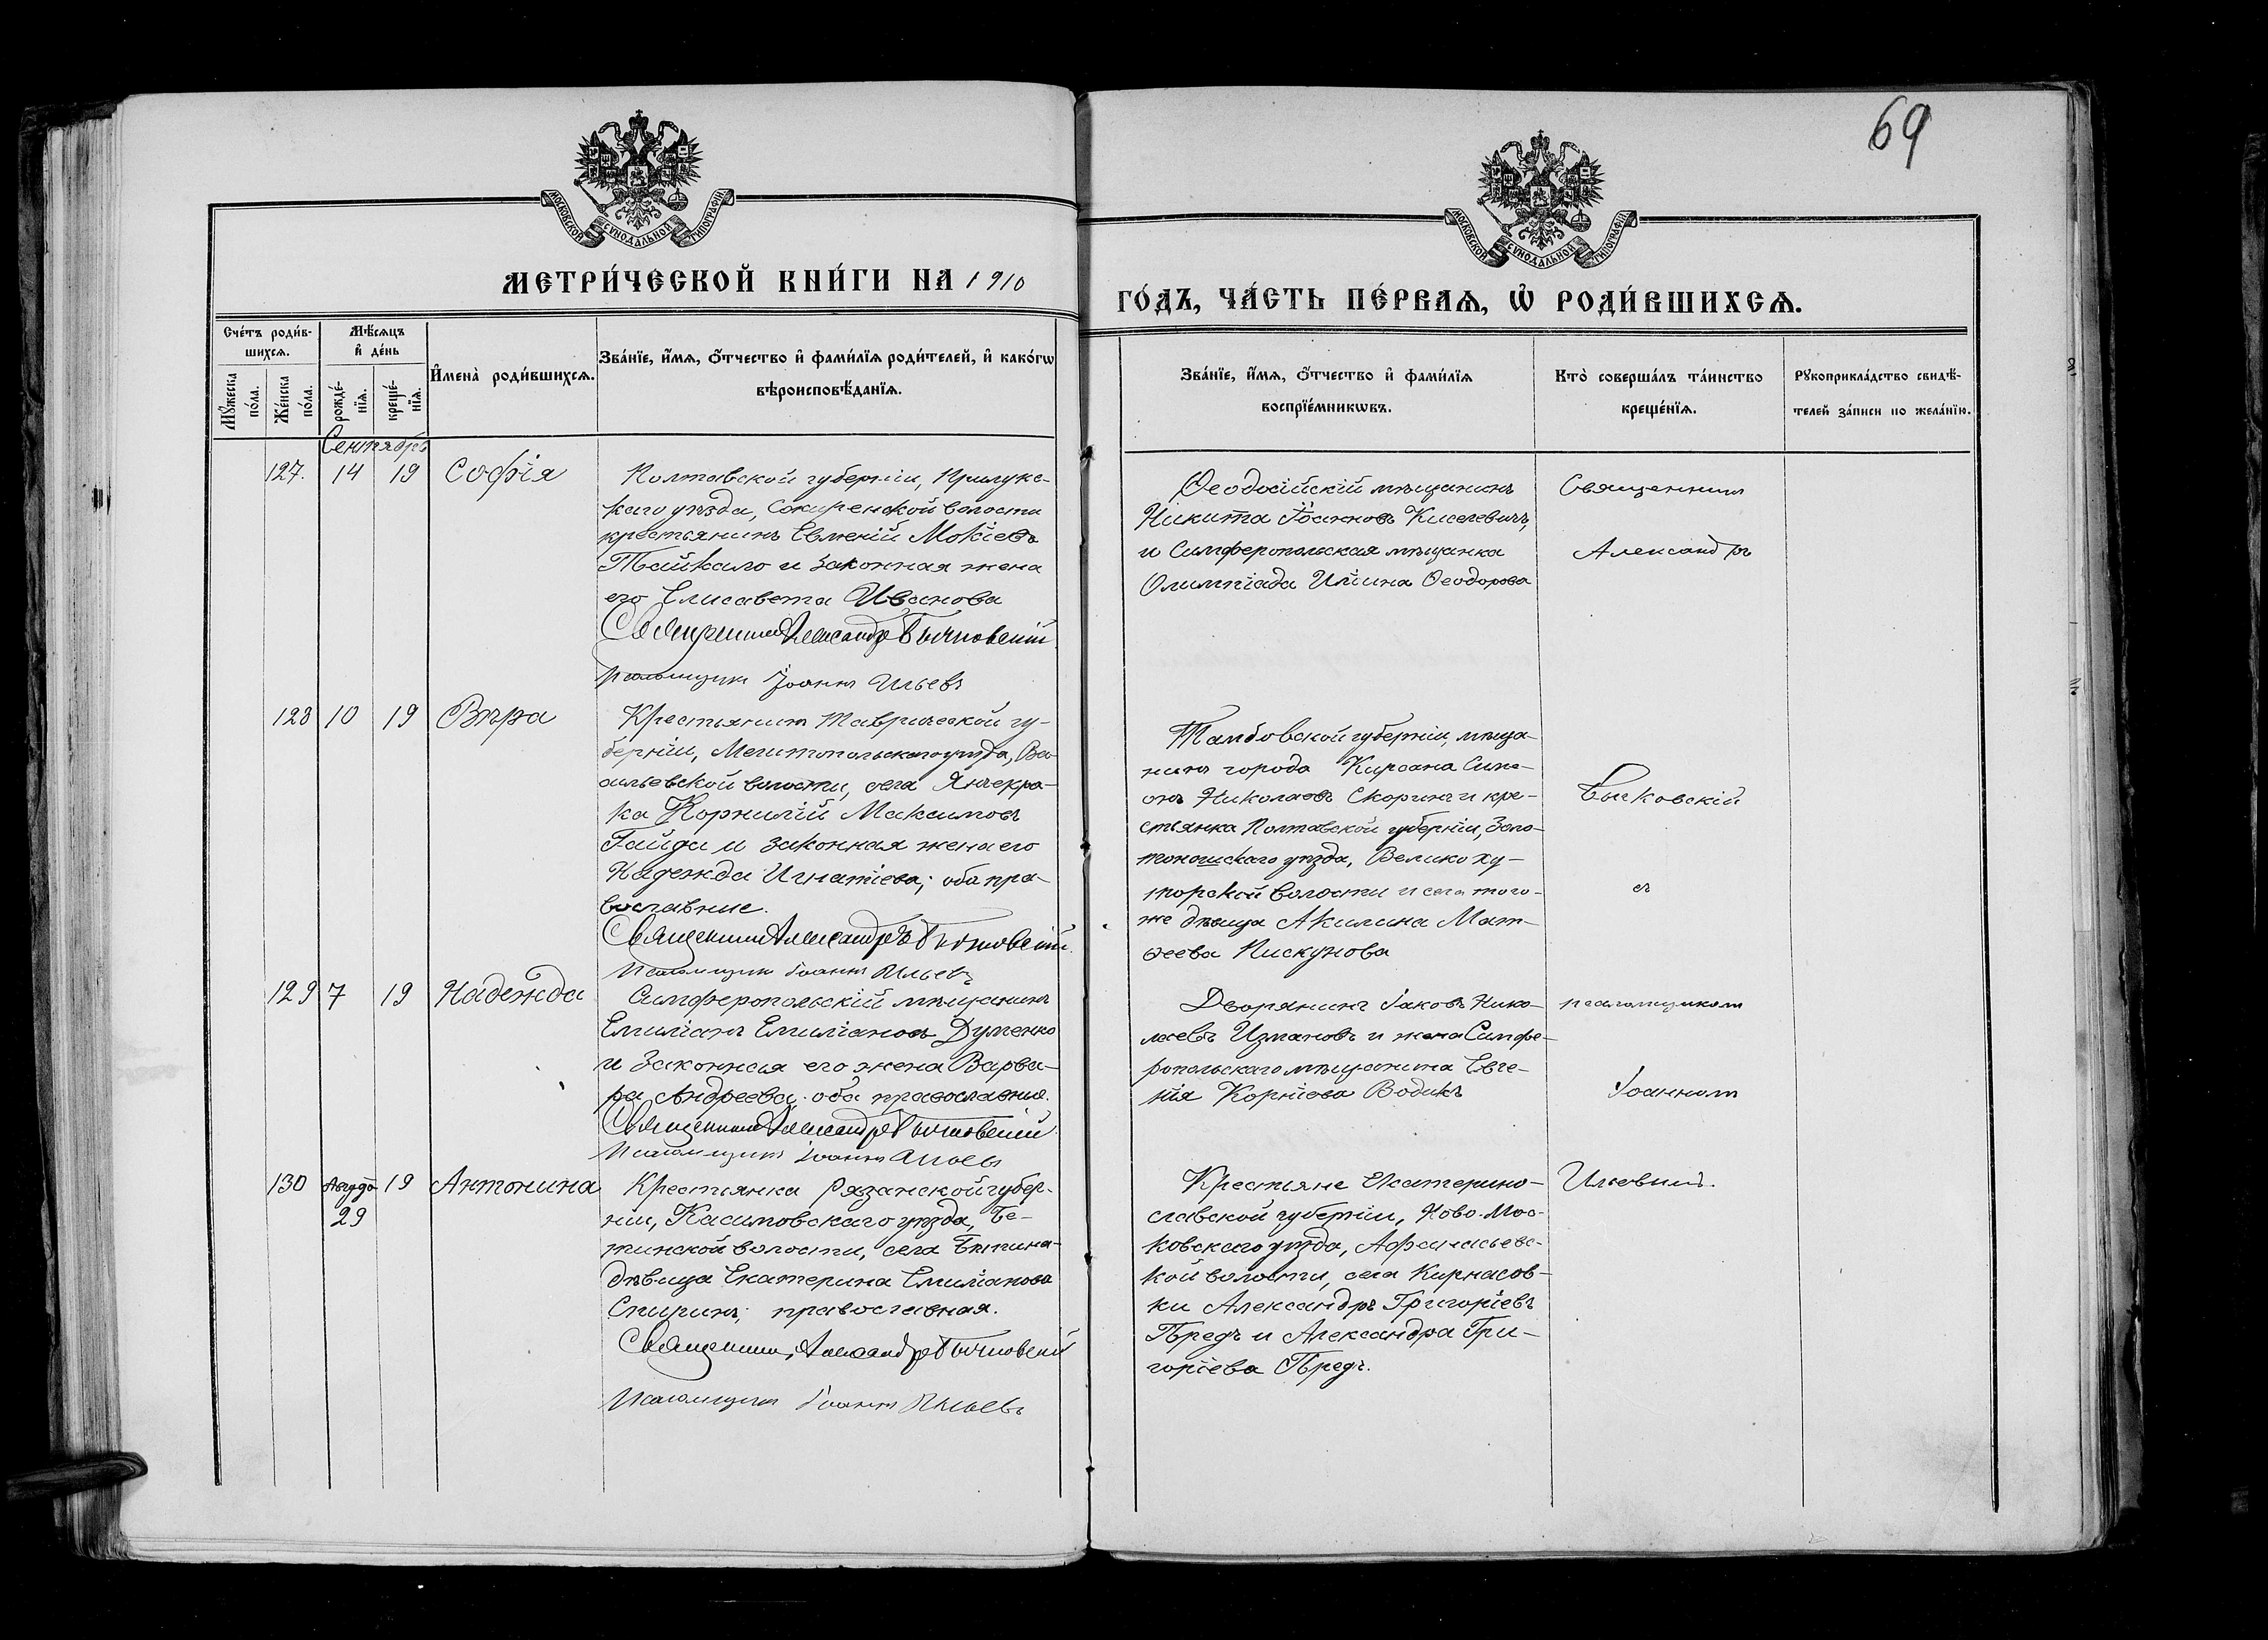 69
МОСКОВСКОЙ СѴНОДАЛЬНОЙ ТИПОГРАФІИ
МОСКОВСКОЙ СѴНОДАЛЬНОЙ ТИПОГРАФІИ
МЕТРИ́ЧЕСКОЙ КНИ́ГИ НА 1910
ГО́ДЪ, ЧА́СТЬ ПЕ́РВАѦ, Ѡ҆ РОДИ́ВШИХСѦ.
Сче́тъ роди́в-
шихсѧ.
Мѣ́сѧцъ
и҆ де́нь
Мꙋ́жеска по́ла.
Же́нска по́ла.
рожде́-нїѧ.
креще́-нїѧ.
И҆мена̀ роди́вшихсѧ.
Зва́нїе, и҆́мѧ, ѻ҆́тчество и҆ фами́лїѧ роди́телей, и҆ како́гѡ
вѣроисповѣ́данїѧ.
Зва́нїе, и҆́мѧ, ѻ҆́тчество и҆ фами́лїѧ
воспрїе́мникѡвъ.
Кто̀ соверша́лъ та́инство
креще́нїѧ.
Рꙋкоприкла́дство свидѣ́-
телей за́писи по жела́нїю.
Сентябрь
127. 14 19 Софія
Полтавской губерніи, Прилукс-
каго уѣзда, Сокиренской волости
крестьянинъ Евмений Мокіевъ
Тайкало и законная жена
его Елисавета Иванова
Священникъ Александръ
Псаломщикъ Іоаннъ Ильевъ
Ѳеодосійскій мѣщанинъ
Никита Іоанновъ Киселевичъ,
и Симферопольская мѣщанка
Олимпіада Ѳеодорова
Священникъ
Александръ
128 10 19 Вѣра
Крестьянинъ Таврической гу-
берніи, Мелитопольскаго уѣзда, Ва-
сильевской волости, села Янчекра-
ка Корнилій Максимовъ
Гайда и законная жена его
Надежда Игнатіева; оба пра-
вославные.
Священникъ Александръ
Псаломщикъ Іоаннъ Ильевъ
Тамбовской губерніи, мѣща-
нинъ города Кирсана Симе-
онъ Николаевъ Скоринъ и кре-
стьянка Полтавской губерніи, Золо-
тоношскаго уѣзда, Великоху-
торской волости и села того-
же дѣвица Акилина Мат-
ѳеева Пискунова
съ
129 7 19 Надежда
Симферопольскій мѣщанинъ
Емиліанъ Емиліановъ Думенко
и законная его жена Варва-
ра Андреева; оба православные.
Священникъ Александръ
Псаломщикъ Іоаннъ Ильевъ
Дворянинъ Іаковъ Нико-
лаевъ Измановъ и жена Симфе-
ропольскаго мѣщанина Евге-
нія Корніева Водикъ
псаломщикомъ
Іоанномъ
130 Августа 19 Антонина
29
Крестьянка Рязанской губер-
ніи, Касимовскаго уѣзда, Бе-
тинской волости, села Бѣтина-
дѣвица Екатерина Емиліанова
Спиринъ; православная.
Священникъ Александръ
Псаломщикъ Іоаннъ Ильевъ
Крестьяне Екатерино-
славской губерніи, Ново-Мос-
ковскаго уѣзда, Афанасьевс-
кой волости, села Кирнасов-
ки Александръ Григоріевъ
и Александра Гри-
горіева
Ильевымъ.